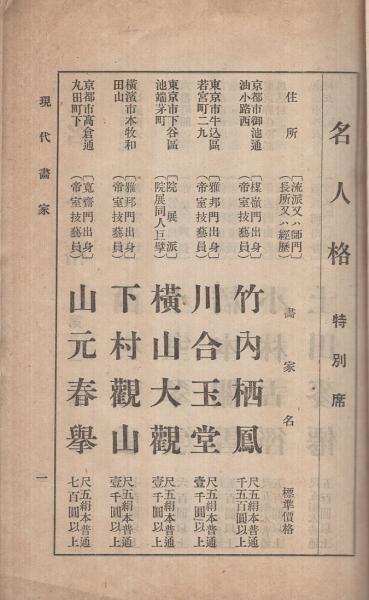 名人格 特別席
住所
〔流派又ハ師門〕
〔長所又ハ經歷〕
畫家名
標準價格
京都市御池通
油小路西
〔楳嶺門出身〕
(帝室技藝員)
竹內栖鳳
尺五絹本普通
千五百圓以上
東京市牛込區
若宮町二九
〔雅邦門出身〕
(帝室技藝員)
川合玉堂
尺五絹本普通
壹千圓以上
東京市下谷區
池端茅町
〔院展派〕
(院展同人巨擘)
橫山大觀
尺五絹本普通
壹千圓以上
橫濱市本牧和
田山
〔雅邦門出身〕
(帝室技藝員)
下村觀山
尺五絹本普通
壹千圓以上
京都市高倉通
丸田町下
〔寬齋門出身〕
(帝室技藝員)
山元春擧
尺五絹本普通
七百圓以上
現代畫家
一